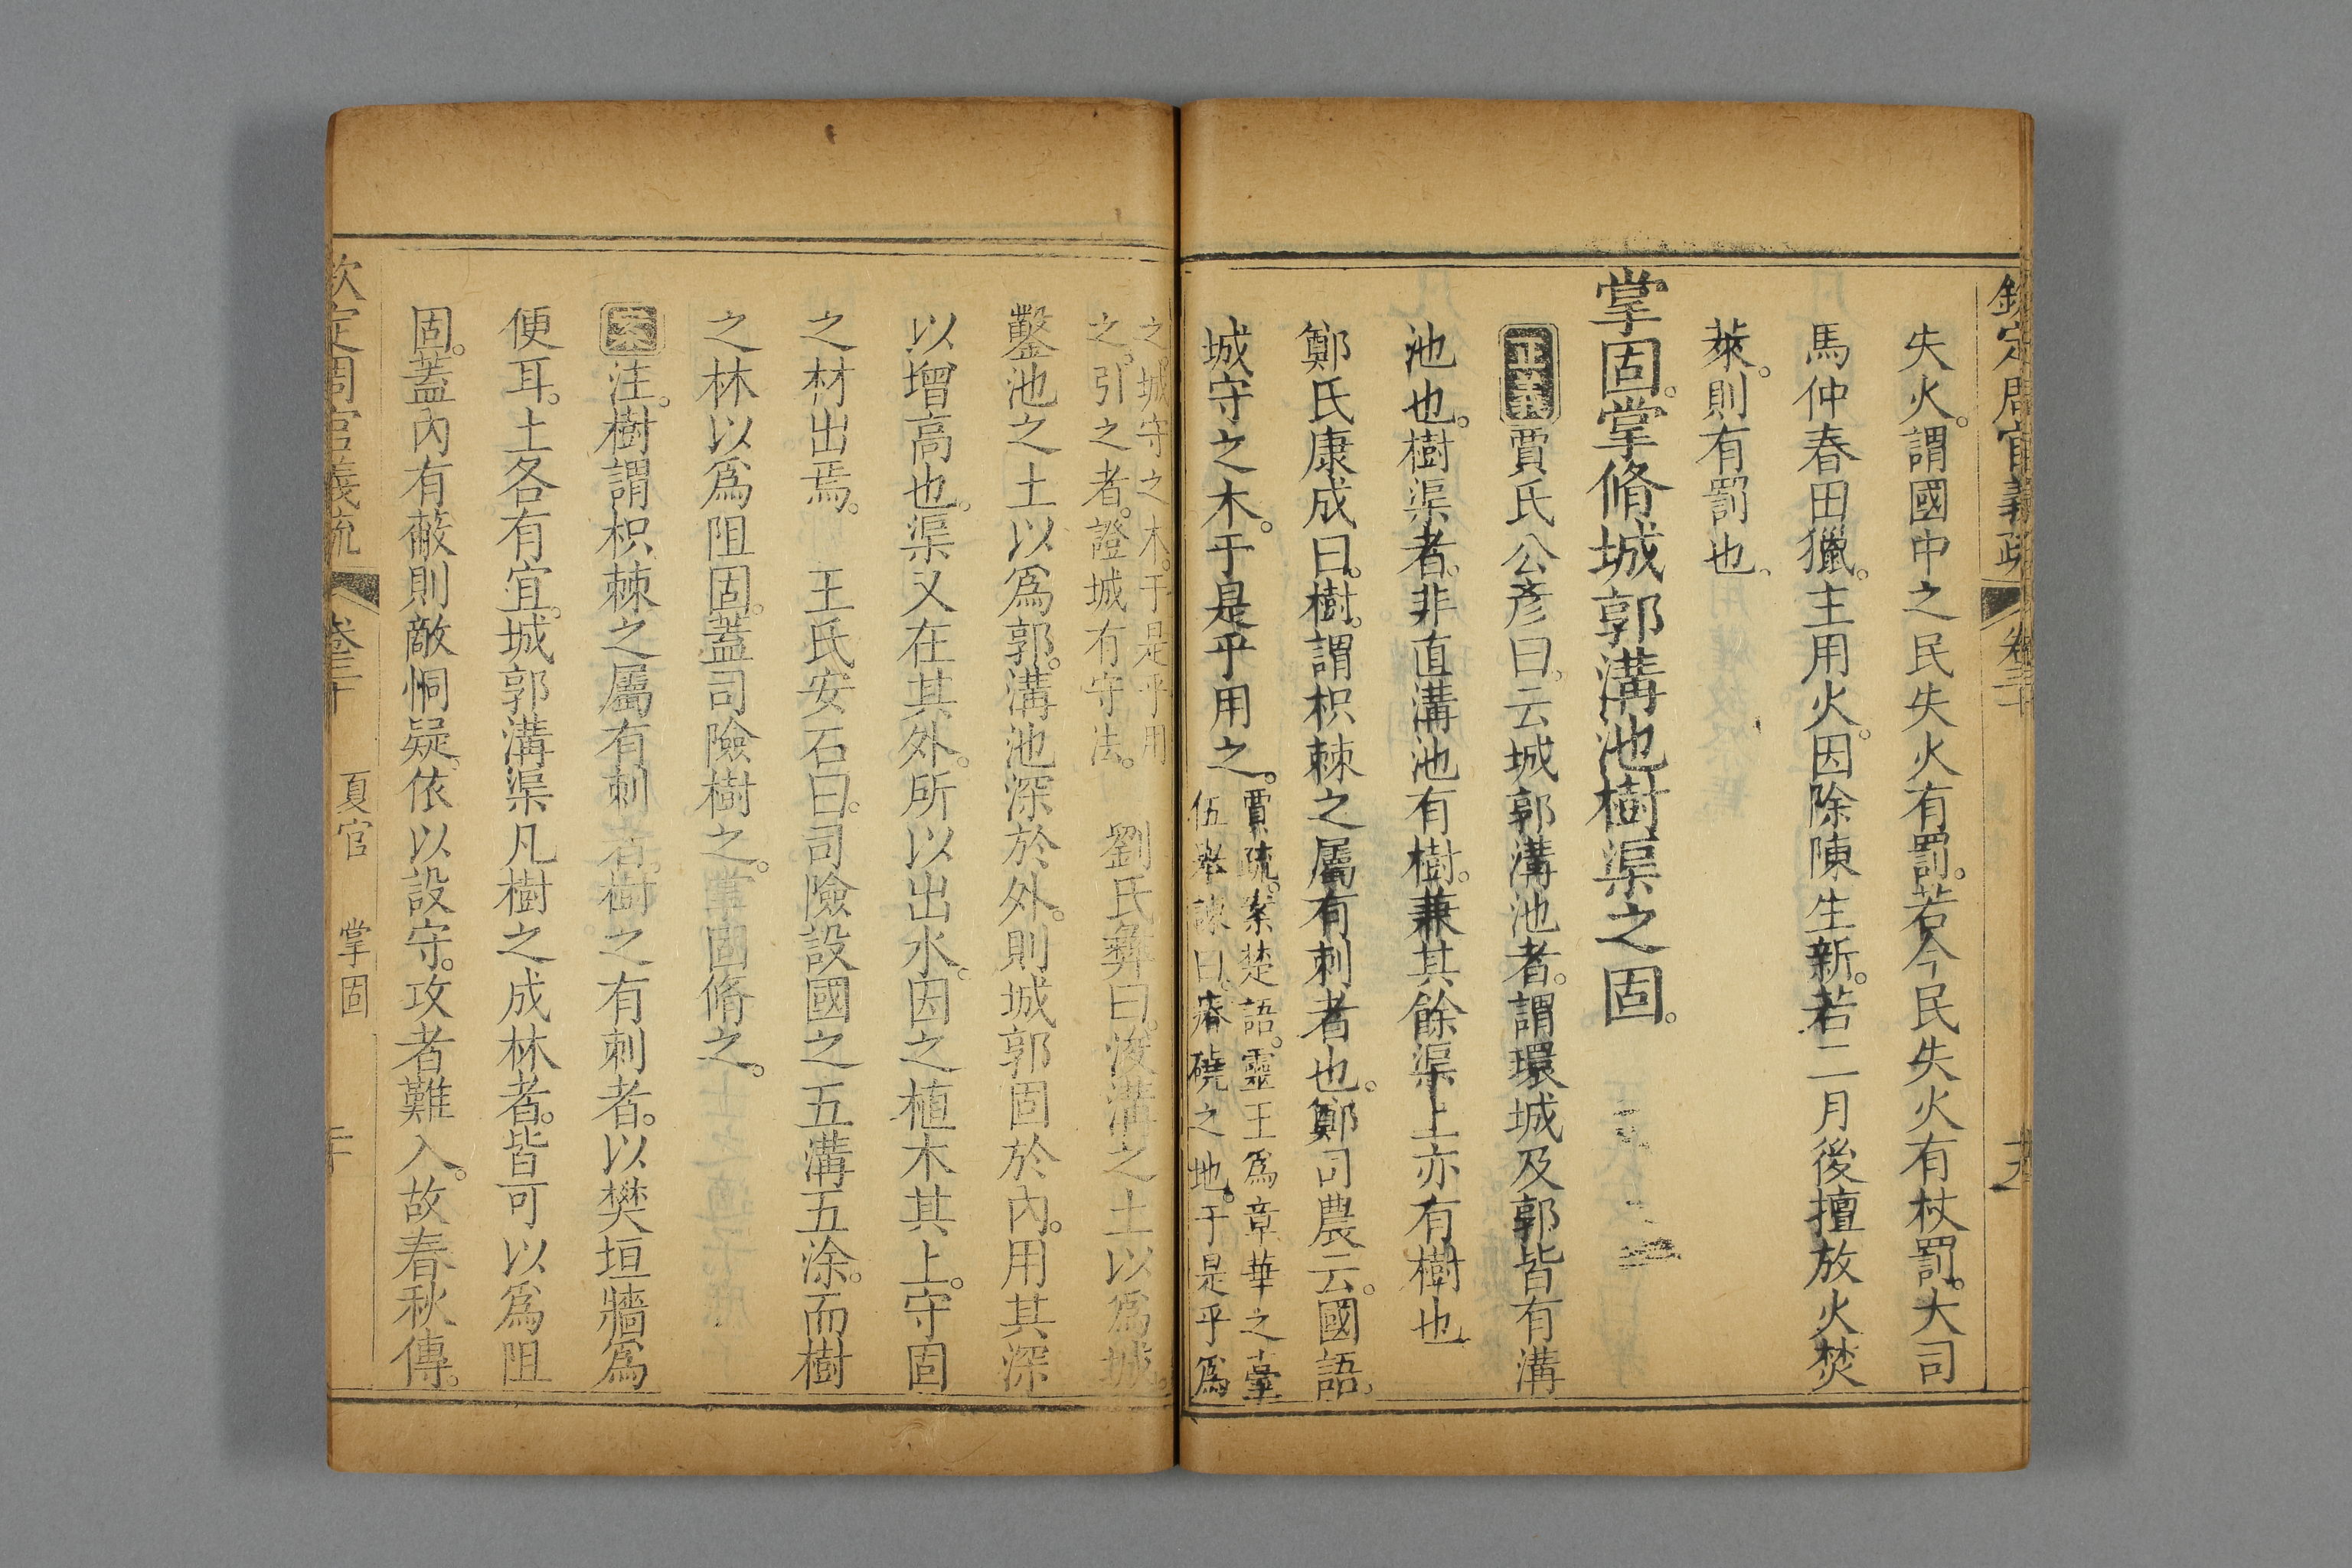 欽定周官義疏 卷三十
失火。謂國中之民失火有罰。若今民失火有杖罰。大司
馬仲春田獵。主用火。因除陳生新。若二月後擅放火焚
萊。則有罰也。
掌固。掌脩城郭溝池樹渠之固。
正義賈氏公彥曰。云城郭溝池者。謂環城及郭皆有溝
池也。樹渠者。非直溝池有樹。兼其餘渠上亦有樹也
鄭氏康成曰。樹。謂枳棘之屬有刺者也。鄭司農云。國語。
城守之木。于是乎用之。
賈疏。案楚語。靈王爲章華之臺
伍舉諫曰。瘠磽之地。于是乎爲
之。城守之木。于是乎用
之。引之者。證城有守法。
劉氏彝曰。浚溝之土以爲城。
鑿池之土以爲郭。溝池深於外。則城郭固於內。用其深
以增高也。渠又在其外。所以出水。因之植木其上。守固
之材出焉。 王氏安石曰。司險設國之五溝五涂。而樹
之林以爲阻固。蓋司險樹之。掌固脩之。
案注。樹謂枳棘之屬有刺者。樹之有刺者。以樊垣牆爲
便耳。土各有宜。城郭溝渠凡樹之成林者。皆可以爲阻
固。蓋內有蔽則敵恫疑。依以設守。攻者難入。故春秋傳。
欽定周官義疏 卷三十 夏官 掌固 二十